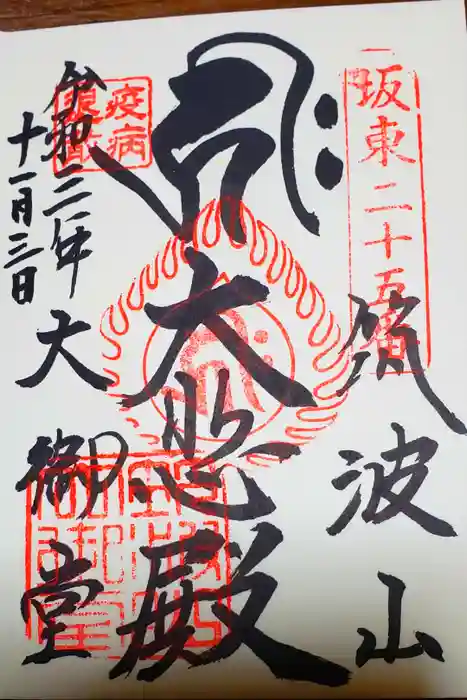 坂東二十五番
筑波山
大悲殿
大御堂
令和二年
十一月三日
疫病